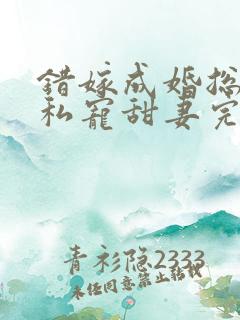 错嫁成婚总
私宠甜妻完
青衫隐2333
未经同意禁止转载